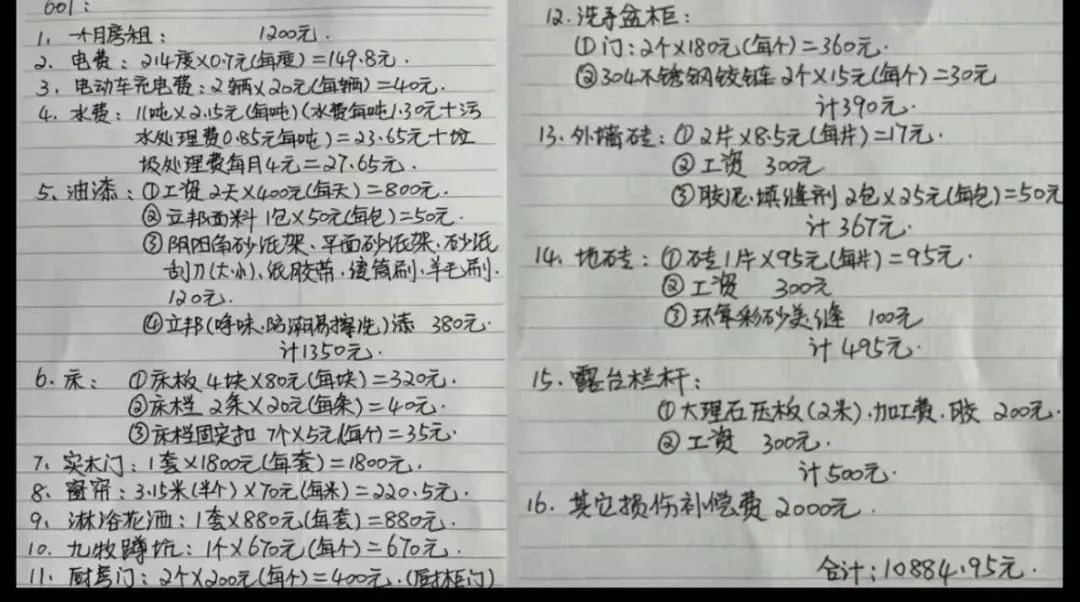 601:
1、一个月房租: 1200元.
2、电费: 214度×0.7元(每度)=149.8元.
3、电动车充电费: 2辆×20元(每辆)=40元.
4、水费: 11吨×2.15元(每吨)(水费每吨1.30元+污
水处理费0.85元每吨)=23.65元+垃
圾处理费每月4元=27.65元.
5、油漆: ①工资 2天×400元(每天)=800元.
②立邦面料 1包×50元(每包)=50元.
③阴阳角砂纸架、平面砂纸架、砂纸
刮刀(大小)、纸胶带、滚筒刷、羊毛刷.
120元.
④立邦(净味、防潮易擦洗)漆 380元.
计1350元.
6、床: ①床板 4块×80元(每块)=320元.
②床档 2条×20元(每条)=40元.
③床档固定扣 7个×5元(每个)=35元.
7、实木门: 1套×1800元(每套)=1800元.
8、窗帘: 3.15米(半个)×70元(每米)=220.5元.
9、淋浴花洒: 1套×880元(每套)=880元.
10、九牧蹲坑: 1个×670元(每个)=670元.
11、厨房门: 2个×200元(每个)=400元.(厨柜门)
12、洗手盆柜:
①门: 2个×180元(每个)=360元.
②304不锈钢铰链 2个×15元(每个)=30元
计390元.
13、外墙砖: ①2片×8.5元(每片)=17元.
②工资 300元
③胶泥、填缝剂 2包×25元(每包)=50元
计367元.
14、地砖: ①砖1片×95元(每片)=95元.
②工资 300元
③环氧彩砂美缝 100元
计495元.
15、露台栏杆:
①大理石压板(2米).加工费.胶 200元.
②工资 300元.
计500元.
16、其它损伤补偿费 2000元.
合计: 10884.95元.